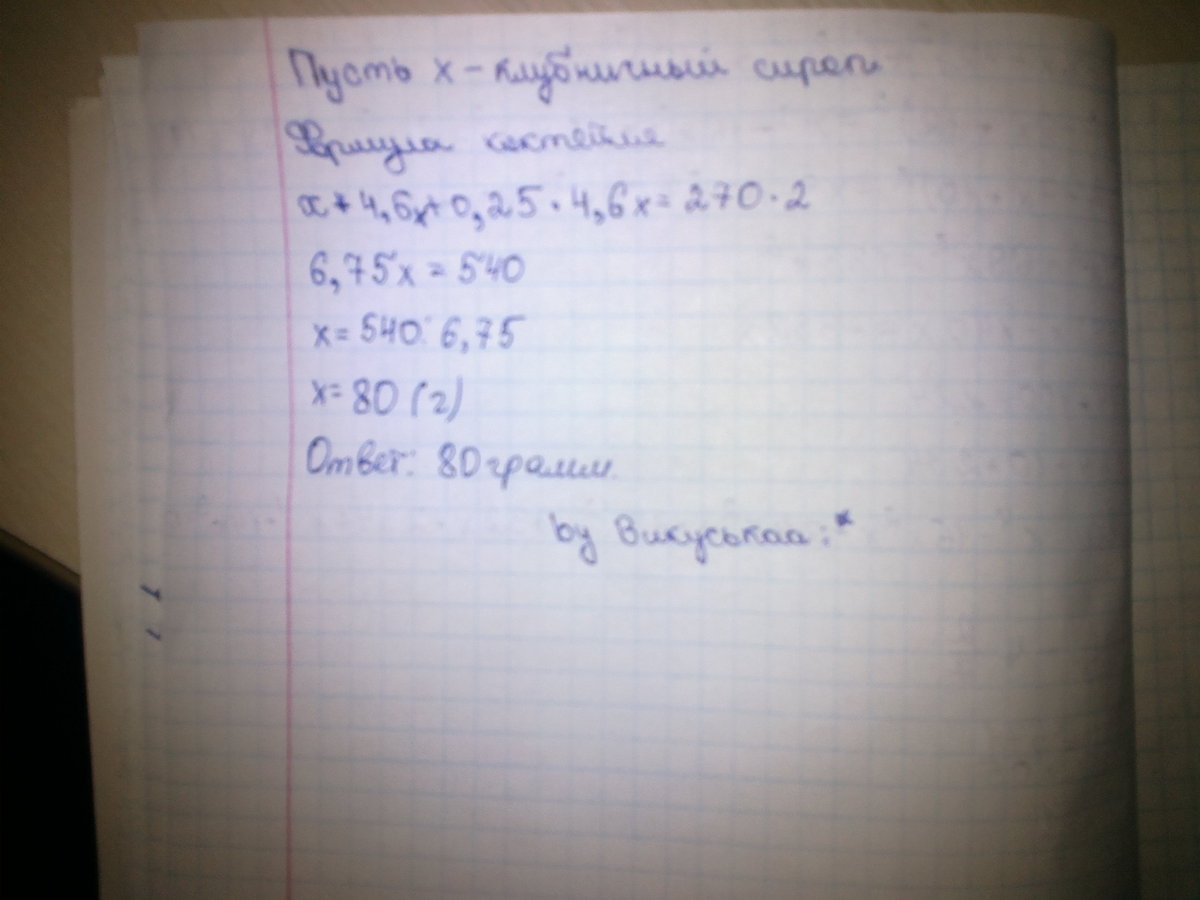 Пусть x - клубничный сироп.
Формула коктейля
x + 4,6x + 0,25 · 4,6x = 270 · 2
6,75x = 540
x = 540 : 6,75
x = 80 (г)
Ответ: 80 грамм.
by Викуськаа :*